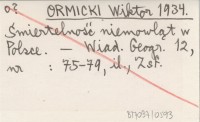 ORMICKI Wiktor 1934.
Śmiertelność niemowląt w
Polsce. — Wiad. Geogr. 12,
nr : 75-79, il., Zsf.